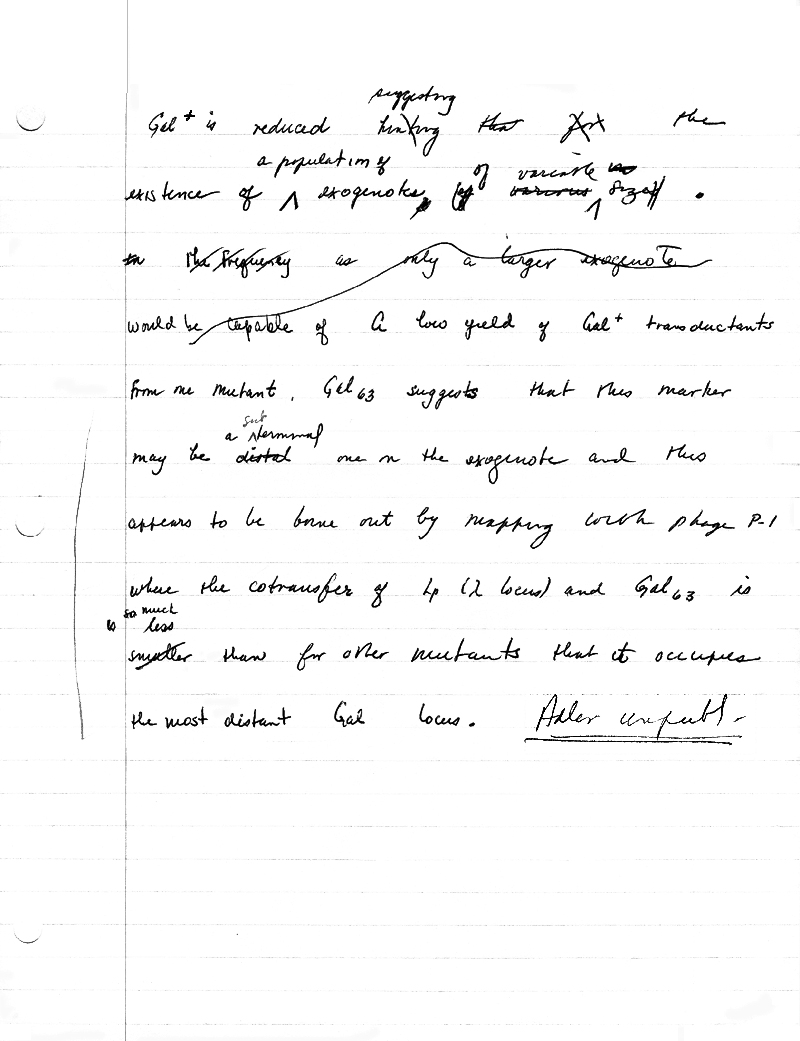 suggesting
Gal + is reduced hinting that for the
a population of of variable
existence of ^ exogenotes, of various ^ size .
in the frequency as only a larger exogenote
would be capable of A low yield of Gal+ transductants
from one mutant, Gal63 suggests that this marker
sub
a terminal
may be distal one on the exogenote and this
appears to be borne out by mapping with phage P-1
where the cotransfer of Lp (λ locus) and Gal63 is
so much
is less
smaller than for other mutants that it occupies
the most distant Gal locus. Adler unpubl.